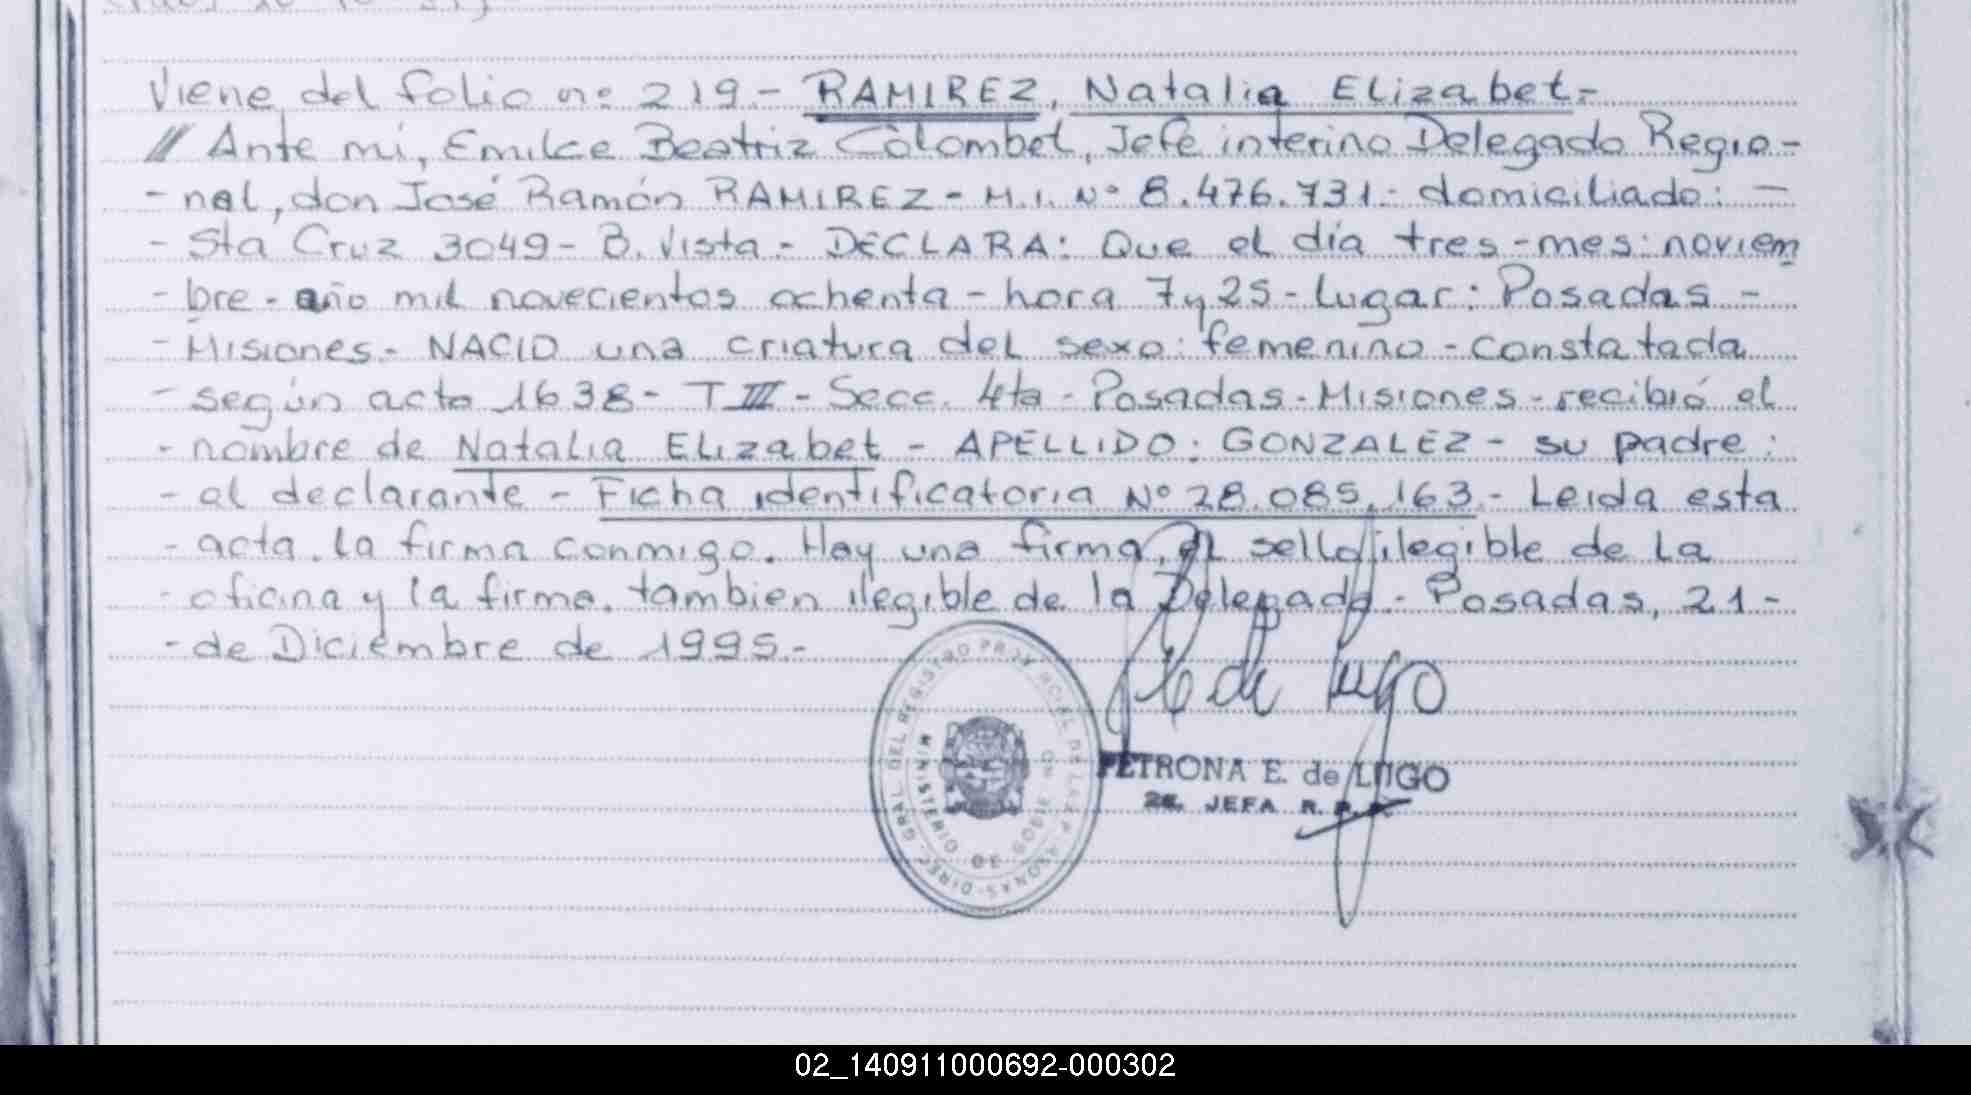 Viene del folio nº 219.- RAMIREZ, Natalia Elizabet.-
// Ante mi, Emilce Beatriz Colombel, Jefe interino Delegado Regio-
- nal, don José Ramón RAMIREZ - M.I. Nº 8.476.731.- domiciliado: -
- Sta Cruz 3049 - B. Vista.- DECLARA: Que el día tres - mes: noviem
- bre - año mil novecientos ochenta - hora 7 y 25 - Lugar: Posadas -
- Misiones.- NACIO una criatura del sexo: femenino - Constatada
- según acta 1638 - T III - Secc. 4ta - Posadas - Misiones - recibió el
- nombre de Natalia Elizabet - APELLIDO: GONZALEZ - su padre:
- el declarante - Ficha identificatoria Nº 28.085.163.- Leida esta
- acta. la firma conmigo. Hay una firma, el sello ilegible de la
- oficina y la firma. tambien ilegible de la Delegada.- Posadas, 21 -
- de Diciembre de 1995.-
DIREC. GRAL. DEL REGISTRO PROVINCIAL DE LAS PERSONAS
MINISTERIO DE GOBIERNO
de Lugo
PETRONA E. de LUGO
JEFA R. P.
02_140911000692-000302